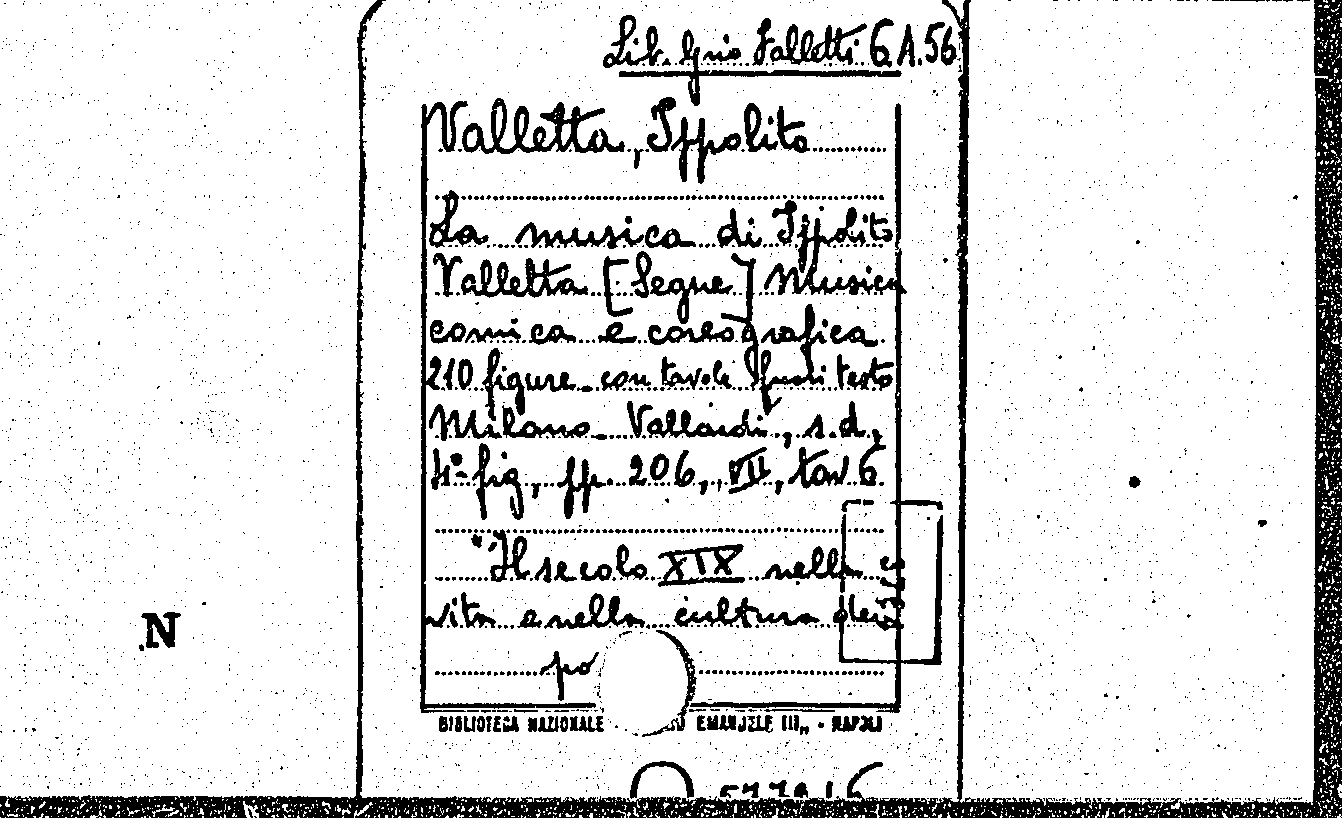 Valletta, Ippolito
La musica di Ippolito
Valletta [Segue] Musica
comica e coreografica
210 figure con tavole fuori testo
Milano. Vallardi, s.d.,
4° fig, pp. 206, VII, tav 6
"Il secolo XIX nella
vita e nella cultura dei
po
BIBLIOTECA NAZIONALE EMANUELE III,, - NAPOLI
N